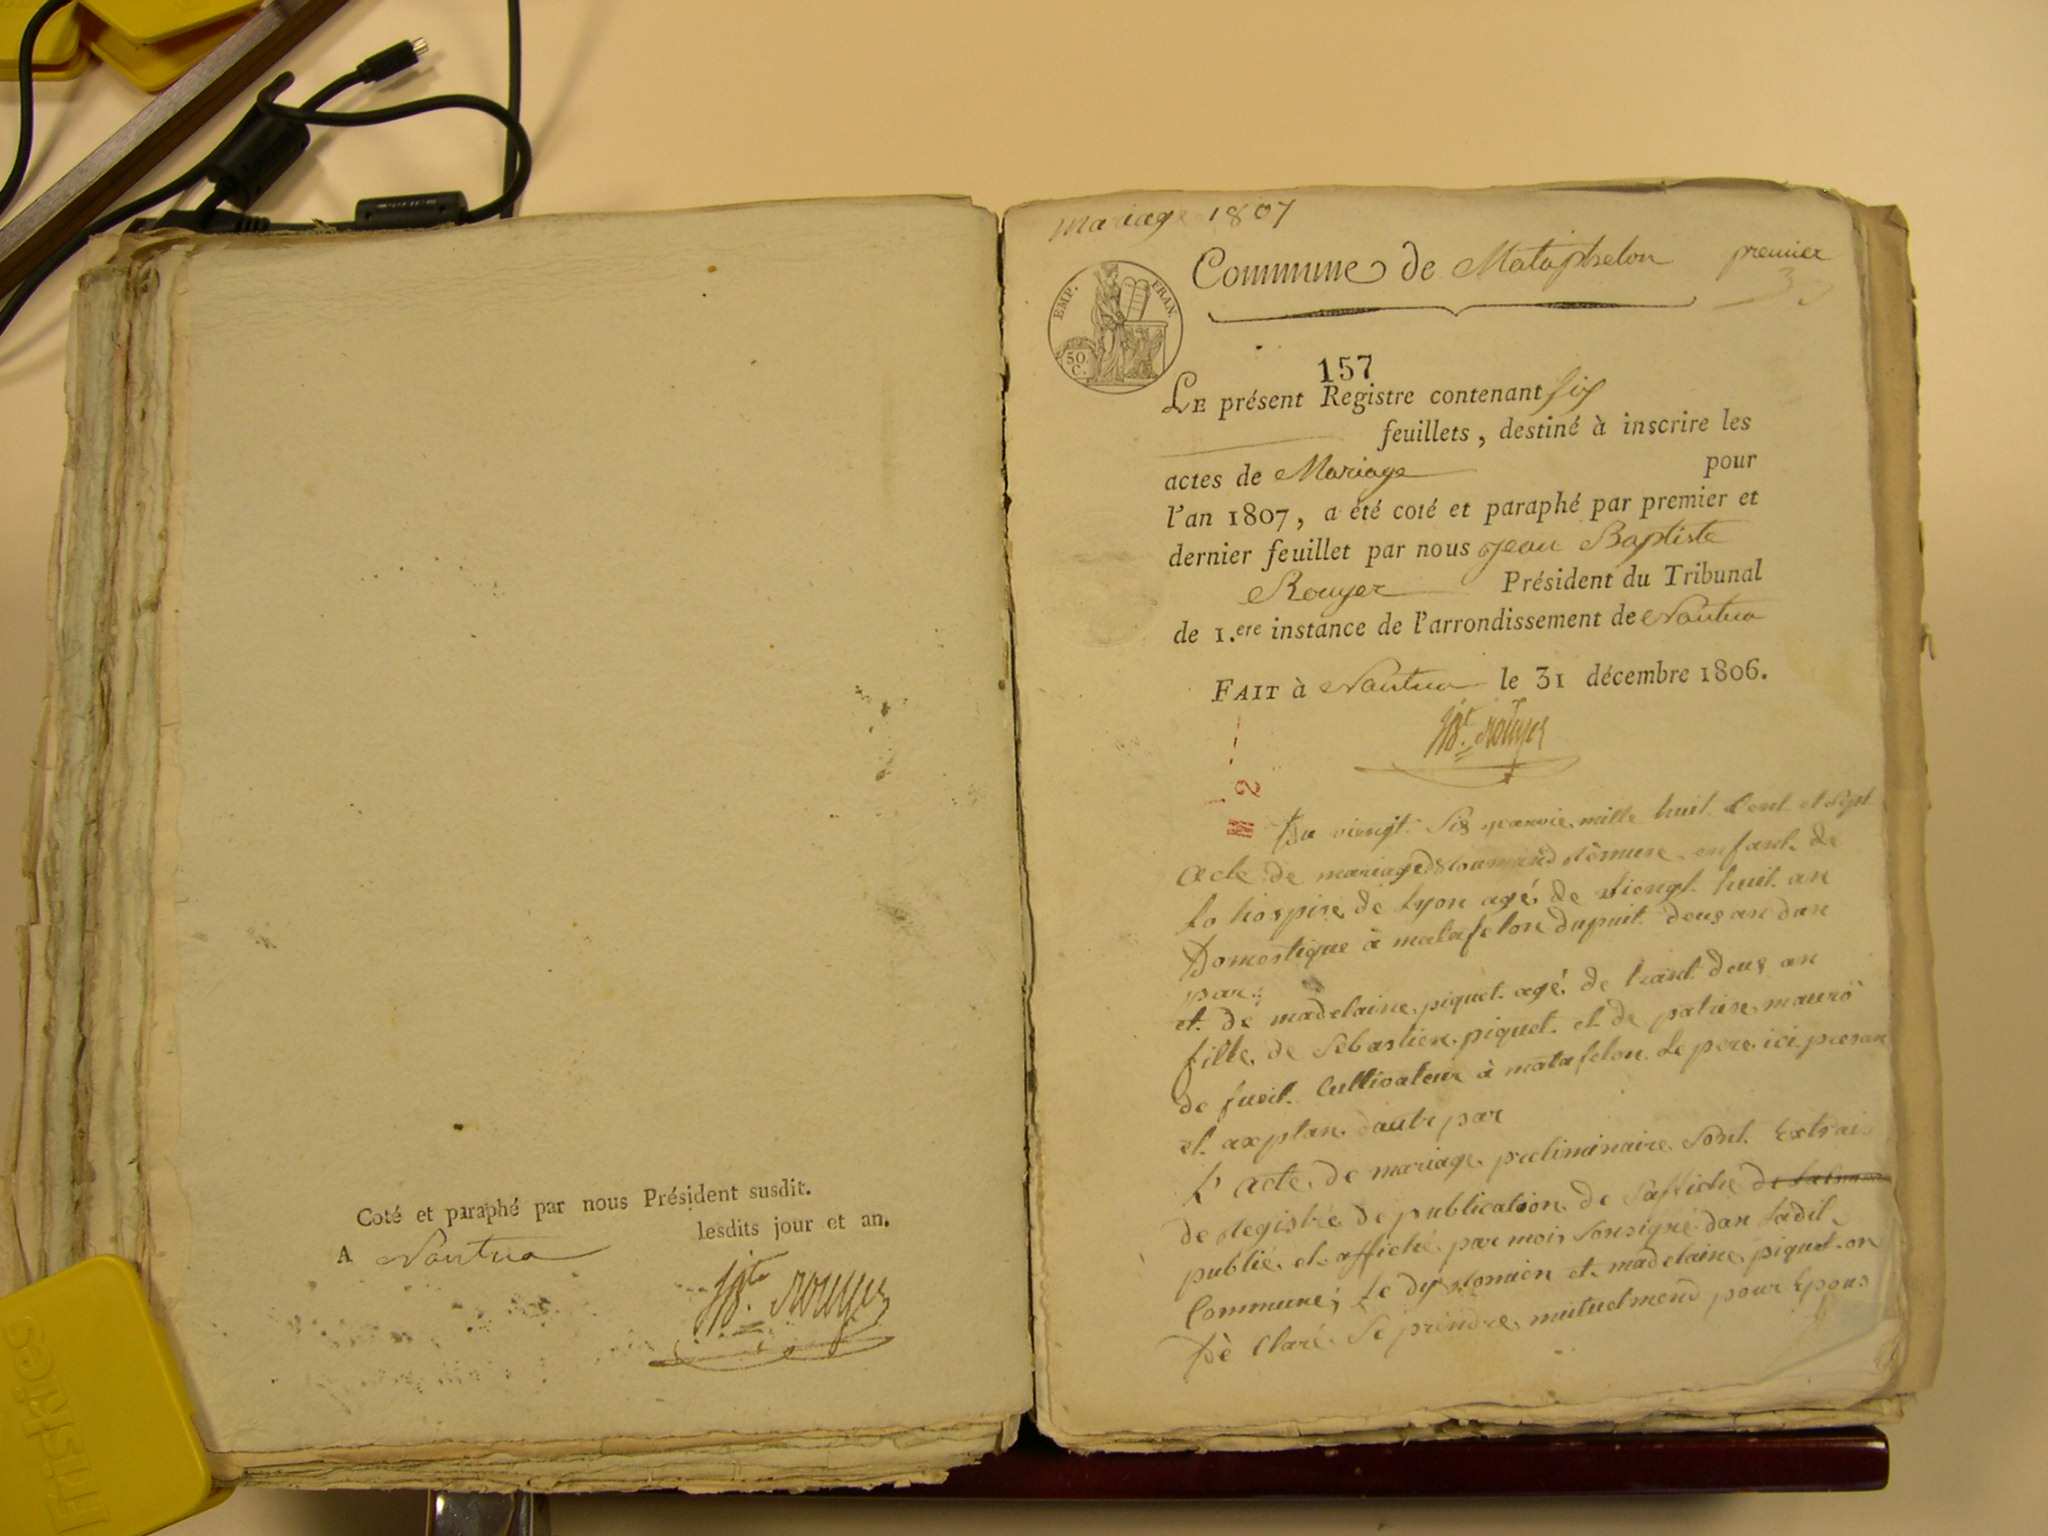 Coté et paraphé par nous Président susdit.
A Nantua lesdits jour et an.
JBte Rouyer
mariage 1807
Commune de Mataphelon premier
EMP. FRAN.
50. C.
157
LE présent Registre contenant six
feuillets, destiné à inscrire les
actes de Mariage pour
l'an 1807, a été coté et paraphé par premier et
dernier feuillet par nous Jean Baptiste
Rouyer Président du Tribunal
de 1.ere instance de l'arrondissement de Nantua
FAIT à Nantua le 31 décembre 1806.
JBt. Rouyer
Du viengt six janvie mille huit Cent et sept
acte de mariage enfant de
la hospise de Lyon agé de viengt huit an
Domestique à matafelon dupuit deus an dun
par
et de madelaine piquet agé de trant deus an
fille de Sebastien piquet et de
de fueit Cultivateur à matafelon Le pere ici presan
et dautr par
L'acte de mariage preliminaire sont Extrai
de Registre de publication de Laffiche
publié et affiché par moi Sonsigné dan Ladit
Commune; Le dy et madelaine piquet on
Dè Claré Se prindre mutuelmend pour Epous
Fiskies